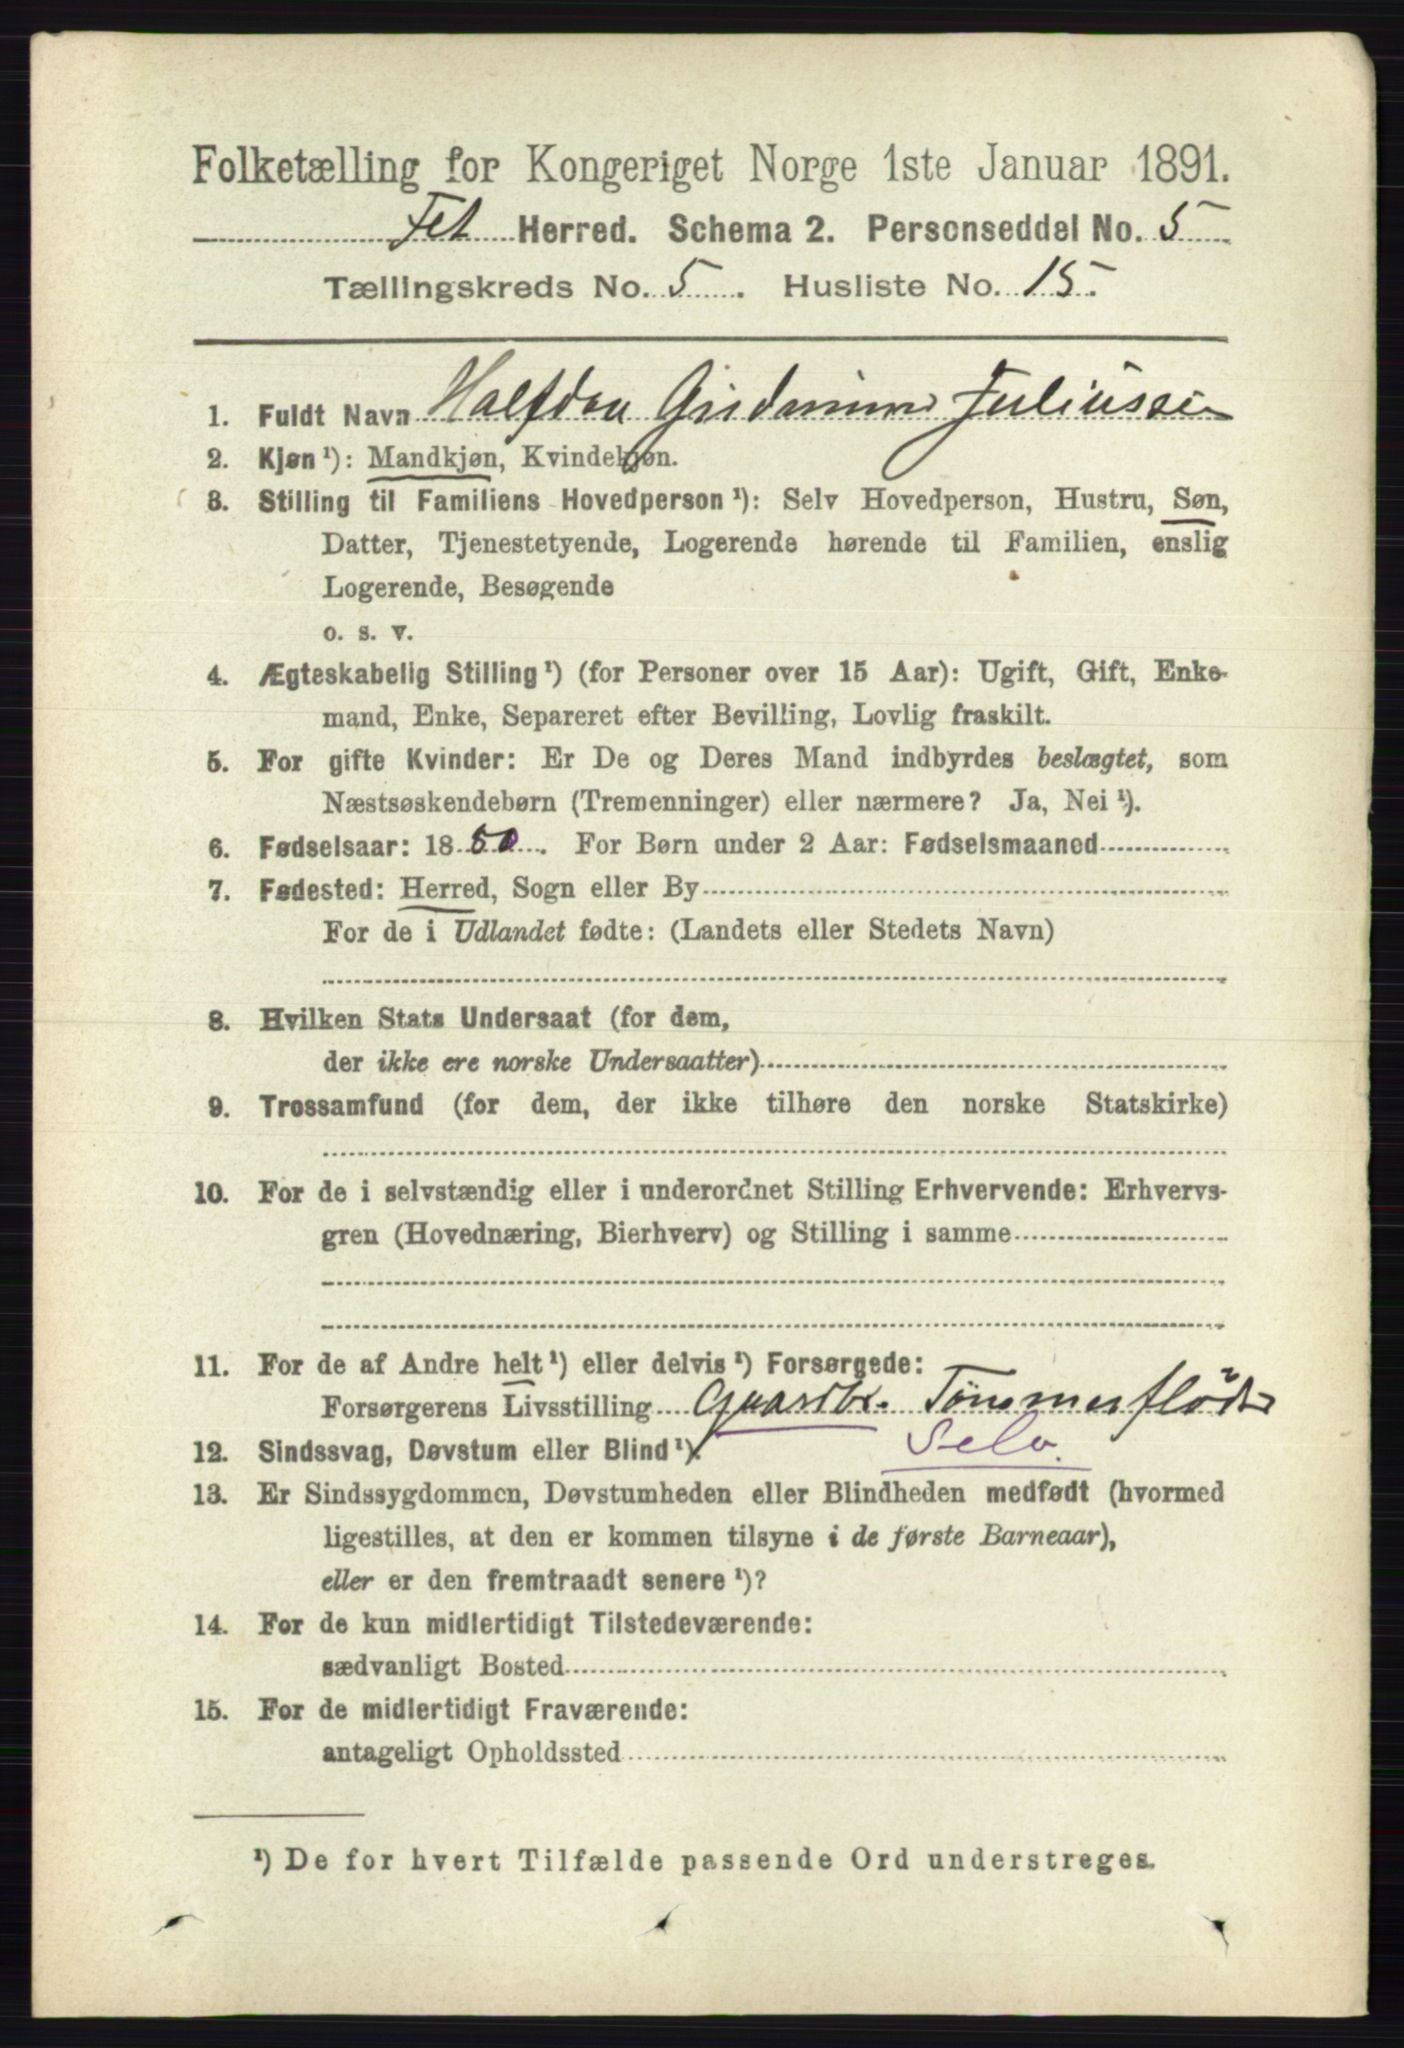 Folketælling for Kongeriget Norge 1ste Januar 1891.
Fet Herred. Schema 2. Personseddel No. 5
Tællingskreds No. 5. Husliste No. 15.
1. Fuldt Navn Halfdan Juliussen
2. Kjøn ¹): Mandkjøn, Kvindekjøn.
3. Stilling til Familiens Hovedperson ¹): Selv Hovedperson, Hustru, Søn,
Datter, Tjenestetyende, Logerende hørende til Familien, enslig
Logerende, Besøgende
o. s. v.
4. Ægteskabelig Stilling ¹) (for Personer over 15 Aar): Ugift, Gift, Enke-
mand, Enke, Separeret efter Bevilling, Lovlig fraskilt.
5. For gifte Kvinder: Er De og Deres Mand indbyrdes beslægtet, som
Næstsøskendebørn (Tremenninger) eller nærmere? Ja, Nei ¹).
6. Fødselsaar: 18 . For Børn under 2 Aar: Fødselsmaaned
7. Fødested: Herred, Sogn eller By
For de i Udlandet fødte: (Landets eller Stedets Navn)
8. Hvilken Stats Undersaat (for dem,
der ikke ere norske Undersaatter)
9. Trossamfund (for dem, der ikke tilhøre den norske Statskirke)
10. For de i selvstændig eller i underordnet Stilling Erhvervende: Erhvervs-
gren (Hovednæring, Bierhverv) og Stilling i samme
11. For de af Andre helt ¹) eller delvis ¹) Forsørgede:
Forsørgerens Livsstilling Gaardbr. Tömmerflöder
12. Sindssvag, Døvstum eller Blind ¹). Selv.
13. Er Sindssygdommen, Døvstumheden eller Blindheden medfødt (hvormed
ligestilles, at den er kommen tilsyne i de første Barneaar),
eller er den fremtraadt senere ¹)?
14. For de kun midlertidigt Tilstedeværende:
sædvanligt Bosted
15. For de midlertidigt Fraværende:
antageligt Opholdssted
¹) De for hvert Tilfælde passende Ord understreges.